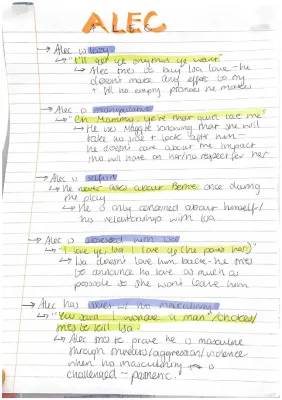 ALEC
→ Alec is lazy
→ "I'll get ye anything ye want"
↳ Alec tries to buy Isa love – he
doesn't make any effort to try
+ fill his empty promises he makes
Alec is manipulative
→ "Ch. Mammy, ye're that quick tae me"
↳ He uses Maggie knowing that she will
take his side + look after him –
he doesn't care about the impact
this will have on her/no respect for her
Alec is selfish
↳ He never asks about Bertie once during
the play
↳ He is only concerned about himself/
his relationship with Isa.
→ Alec is obsessed with Isa
→ "I love ye, Isa I love ye (he paws her)"
↳ Isa doesn't love him back – he tries
to announce his love as much as
possible so she wont leave him
→ Alec has issues w/ his masculinity
→ "You said I wisnae a man"/chokes/
tries to kill Isa.
↳ Alec tries to prove he is masculine
through threats/aggression/violence
when his masculinity is
challenged – pathetic.